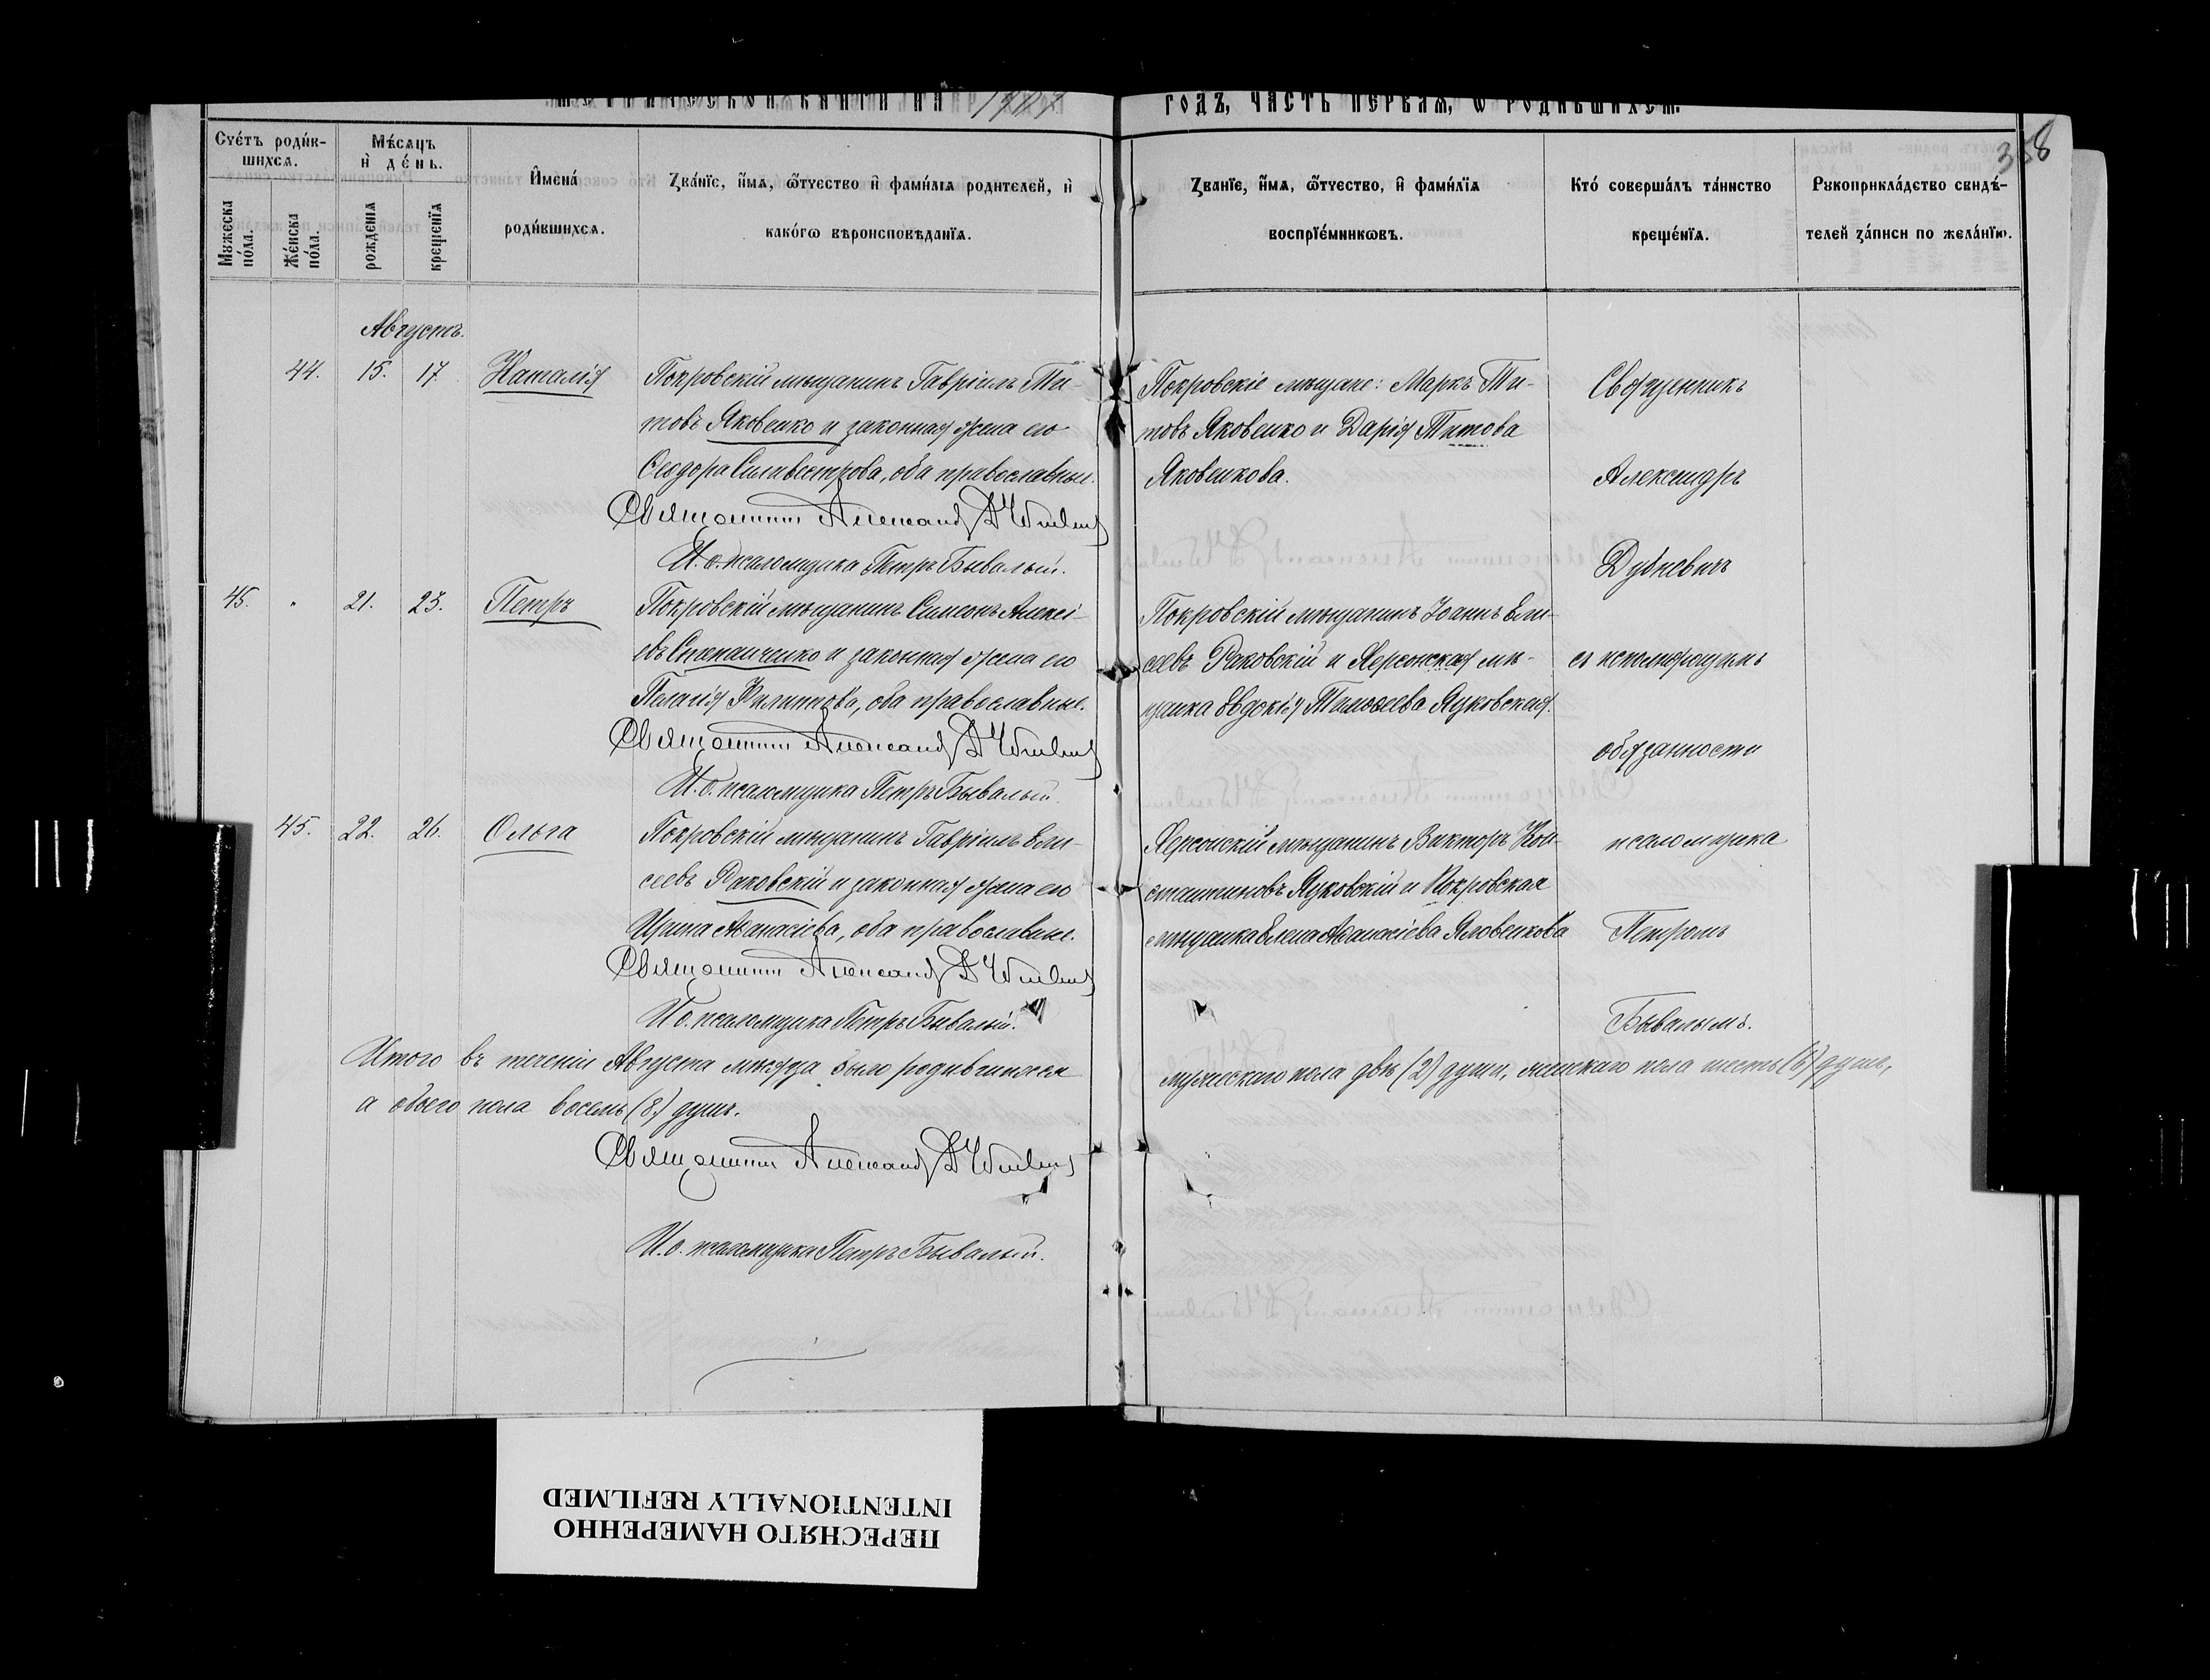 годъ, часть первая, ѡ родившихсѧ.
358
Счётъ роди́вшихсѧ.
Мѣ́сѧцъ и҆ де́нь.
И҆мена́ роди́вшихсѧ.
Зва́нїе, и҆́мѧ, ѻ҆́тчество и҆ фами́лїѧ роди́телей, и҆ како́гѡ вѣроисповѣ́данїѧ.
Зва́нїе, и҆́мѧ, ѻ҆́тчество, и҆ фами́лїѧ воспрїе́мникѡвъ.
Кто́ соверша́лъ та́инство креще́нїѧ.
Рꙋкоприкла́дство свидѣ́телей за́писи по жела́нїю.
Мꙋжеска по́ла.
Же́нска по́ла.
рожденїѧ
крещенїѧ
Августъ.
44. 15. 17. Наталія
Покровскій мѣщанинъ Гавріилъ Ти-
товъ Яковенко и законная жена его
Ѳеодора Силивестрова, оба православные.
Священникъ Александръ
И. о. псаломщика Петръ Бывалый.
Покровскіе мѣщане: Маркъ Ти-
товъ Яковенко и Дарія Титова
Яковенкова.
45. " 21. 23. Петръ
Покровскій мѣщанинъ Симеонъ Алексі-
евъ Степанченко и законная жена его
Пелагія Филиппова, оба православные.
Священникъ Александръ
И. о. псаломщика Петръ Бывалый.
Покровскій мѣщанинъ Іоаннъ Ели-
сеевъ Раковскій и Херсонская мѣ-
щанка Евдокія Тимоѳеева Яцковская.
45. 22. 26. Ольга
Покровскій мѣщанинъ Гавріилъ Ели-
сеевъ Раковскій и законная жена его
Ирина Аѳанасіева, оба православные.
Священникъ Александръ
И. о. псаломщика Петръ Бывалый.
Херсонскій мѣщанинъ Викторъ Кон-
стантиновъ Яцковскій и Покровская
мѣщанка Елена Аѳанасіева Яловенкова
Священникъ
Александръ
Дубневичъ
съ исполняющимъ
обязанности
псаломщика
Петромъ
Бывалымъ.
Итого въ теченіи Августа мѣсяца было родившихся мужескаго пола двѣ (2) души, женскаго пола шесть (6) душъ,
а обоего пола восемь (8) душъ.
Священникъ Александръ
И. о. псаломщика Петръ Бывалый.
ПЕРЕСНЯТО НАМЕРЕННО
INTENTIONALLY REFILMED